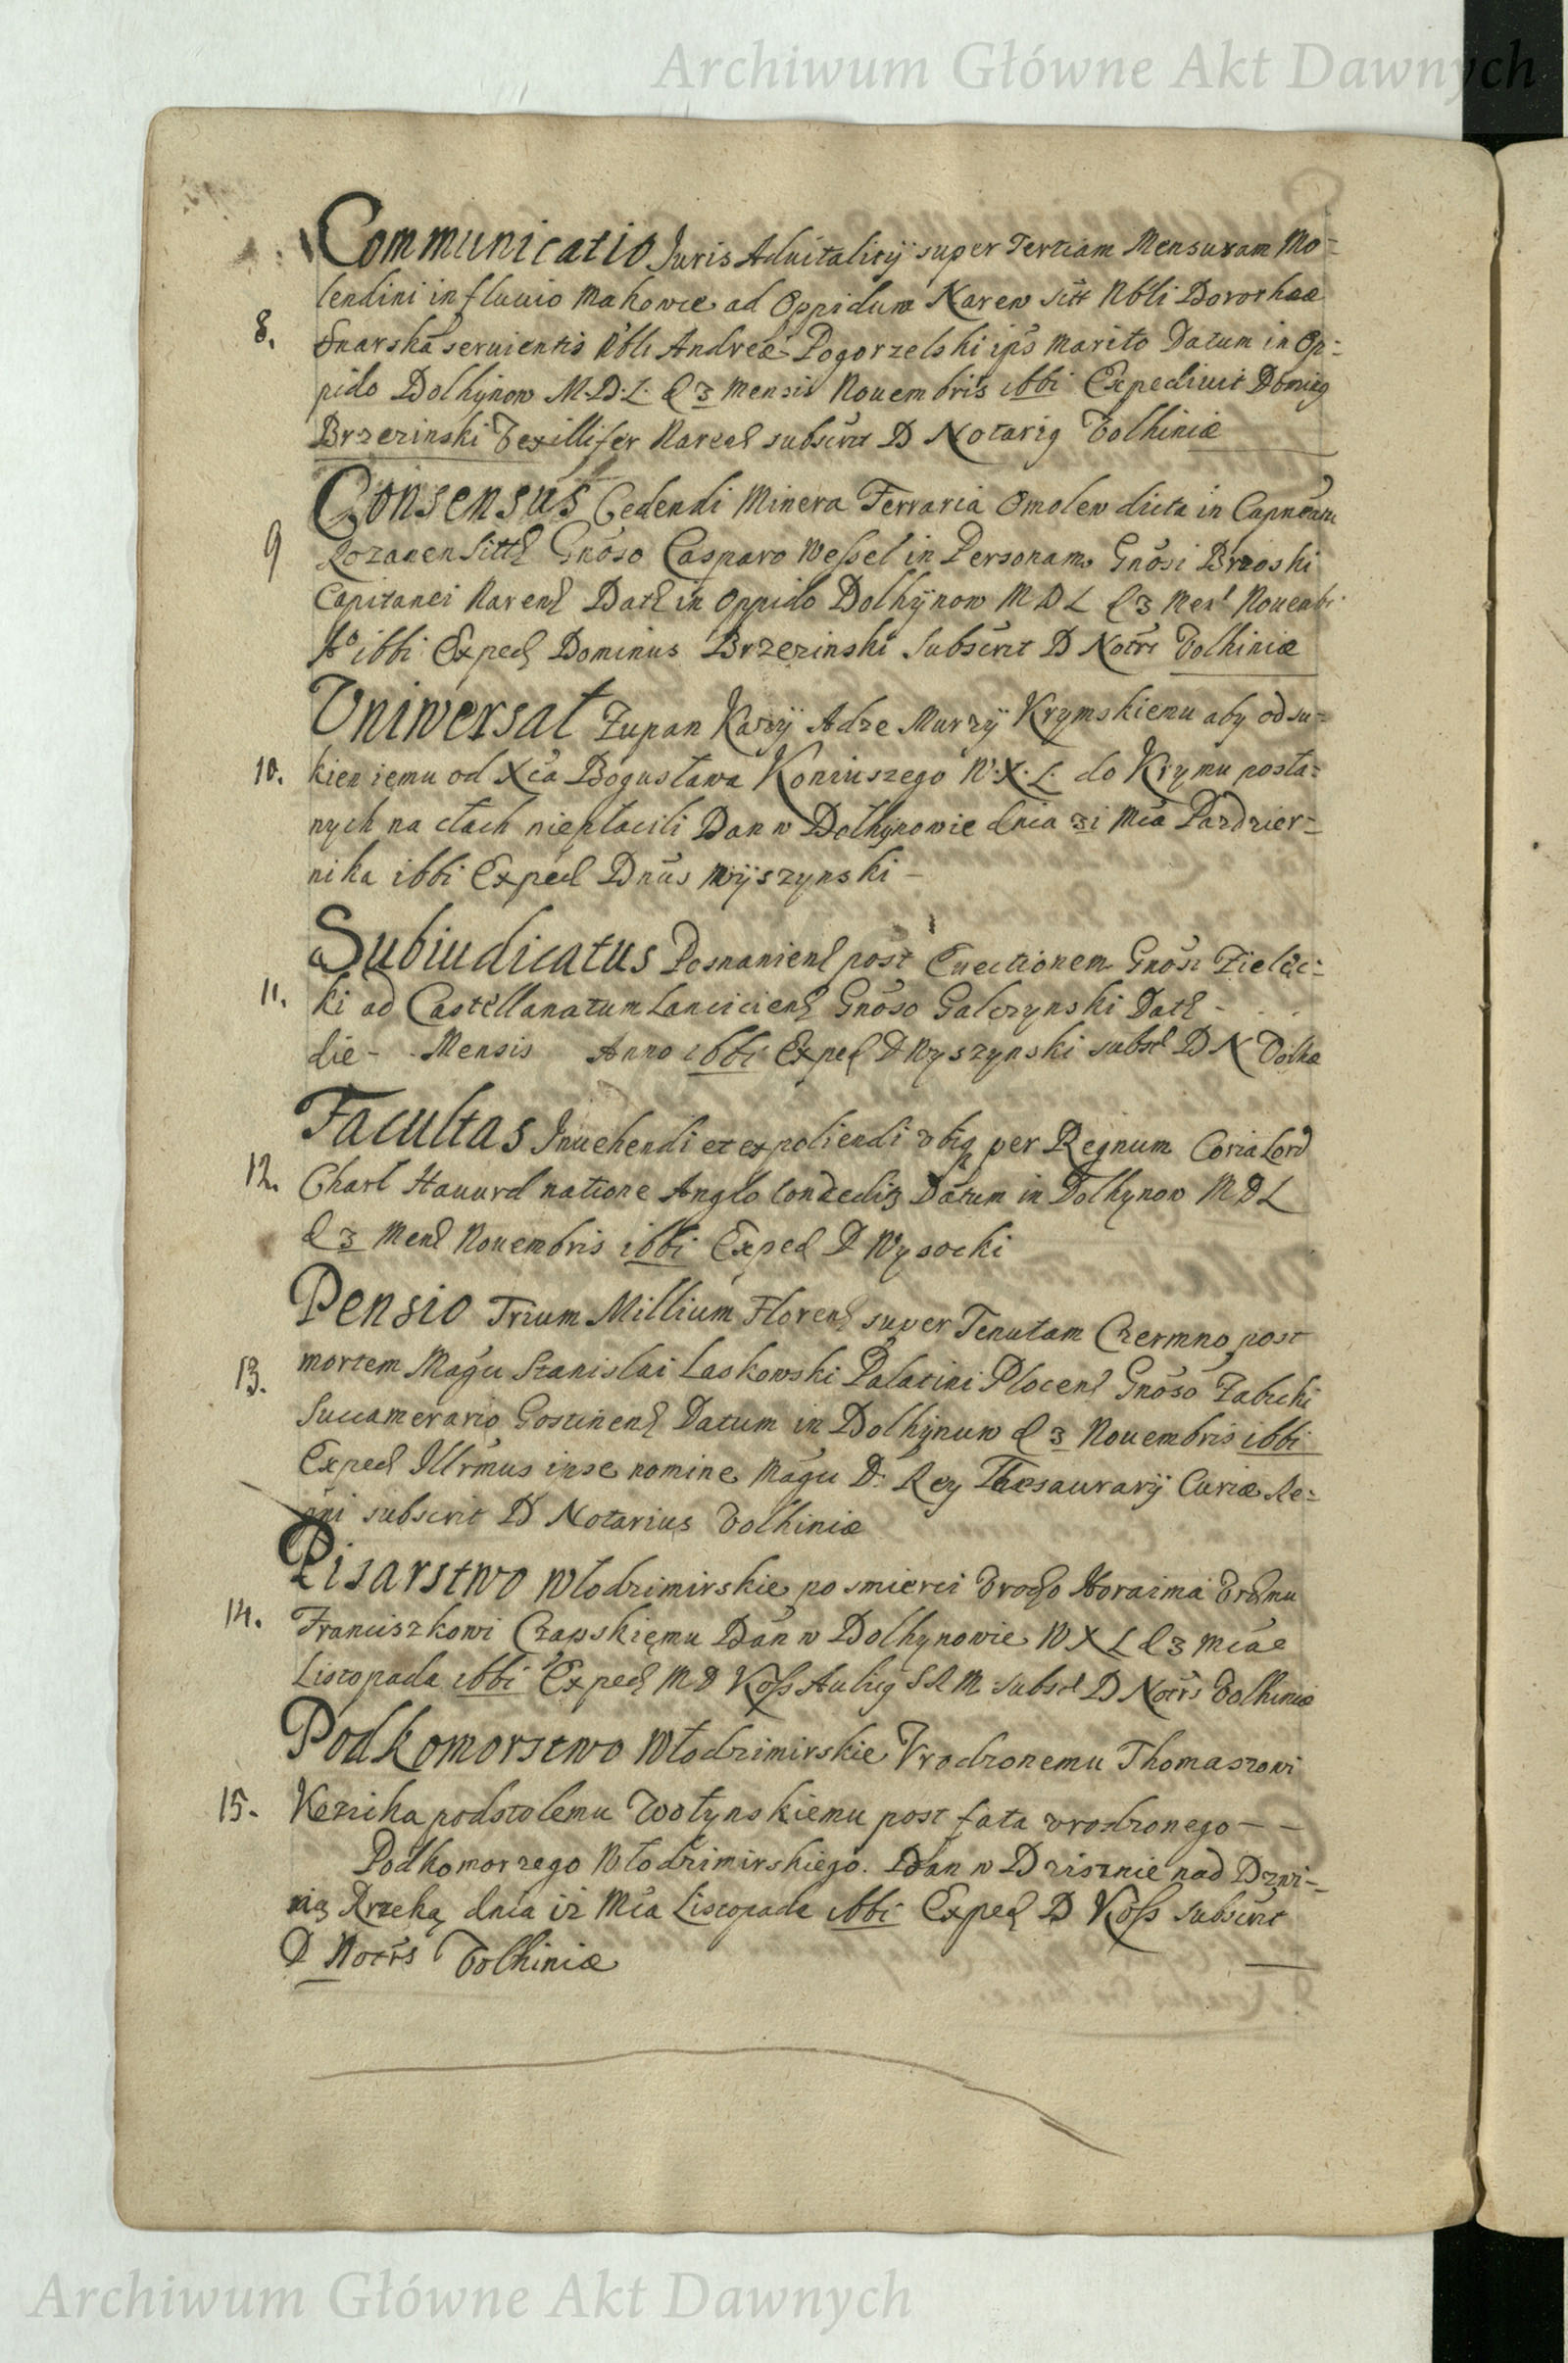 Archiwum Główne Akt Dawnych
Communicatio Juris Aduitalitÿ super Tertiam Mensuram Mo=
lendini in fluuio Makowce ad Oppidum Narew sitt Nbli Dorothea
8. seruientis Nbli Andreæ Pogorzelski ips marito Datum in Op=
pido Dolhÿnow M.D.L. d 3 Mensis Nouembris ibbi Expediuit Doming
Brzezinski Vexillifer subscrit D Notarig Volhiniæ
Consensus Cedendi Minera Ferraria Omolew dicta in
9 Rozanen sitt Gnoso Casparo Wessel in Personam Gnosi Brzoski
Capitanei Daty in Oppido Dolhÿnow M D L d 3 Nouemb
ibbi Exped Dominus Brzezinski Subscrit D Notrs Volhiniæ
Vniwersał Zupan Kazÿ Adze Murzÿ Krymskiemu aby od su=
10. kien iemu od Xcia Bogusława Koniuszego W.X.L. do Krymu posła=
nych na cłach niepłacili Dan w Dolhÿnowie dnia 31 Mca Pazdzier=
nika ibbi Exped Dnus Wÿszynski -
Subiudicatus Posnanien post Euectionem Gnosi Zielec=
11. ki ad Castellanatum Lancicien Gnoso Galczynski Dat -
die - - Mensis Anno ibbi Exped D Wyszynski subsc D N Volhe
Facultas Inuehendi et expoliendi vbiq per Regnum Coria Lord
12. Charl Hauurd natione Anglo Datum in Dolhynow M D L
d 3 Mens Nouembris ibbi Exped D Wysocki
Pensio Trium Millium Floren super Tenutam Czermno post
13. mortem Magci Stanislai Laskowski Palatini Plocen Gnoso Zabicki
Succamerario Gostinen Datum in Dolhÿnow d 3 Nouembris ibbi
Exped Illrmus ipse nomine Magci D. Rey Thesaurarÿ Curiæ Re=
gni subscrit D Notarius Volhiniæ
Pisarstwo Włodzimirskie po smierci Vrodgo Horaima Vrdmu
14. Franciszkowi Czapskiemu Dan w Dolhynowie W X L d 3 mca
Listopada ibbi Exped M D Koss Aulicg S R M subsc D Notrs Volhiniæ
Podkomorstwo Włodzimirskie Vrodzonemu Thomaszowi
15. podstolemu Wołynskiemu post fata vrodzonego - -
Podkomorzego Włodzimirskiego. Dan w Dzisznie nad Dzwi=
nią Rzeką dnia 12 Mca Listopada ibbi Exped D Koss subscrit
D Notrs Volhiniæ
Archiwum Główne Akt Dawnych